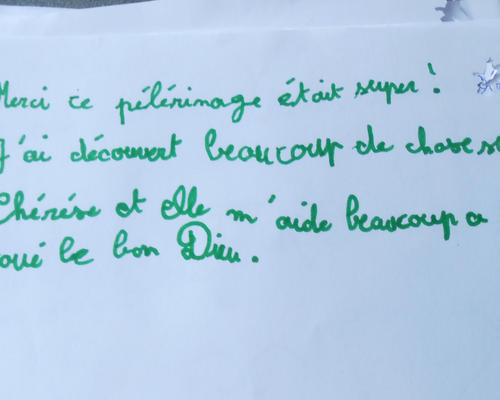 Merci ce pélérimage était super !
J'ai découvert beaucoup de chose
Thérèse et elle m'aide beaucoup a
le bon Dieu.